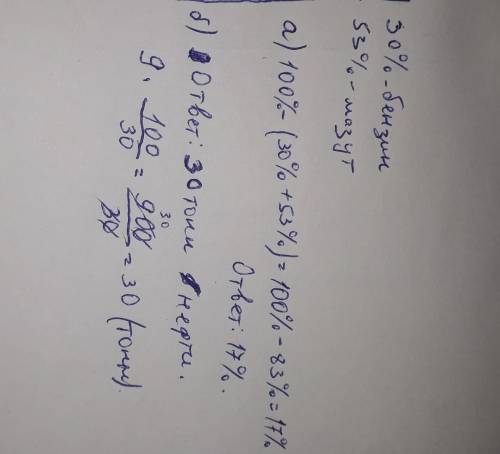 30% - бензин
53% - мазут
а) 100% - (30% + 53%) = 100% - 83% = 17%
Ответ: 17%.
б) Ответ: 30 тонн нефти.
9 · 100/30 = 900/30 = 30 (тонн).
30